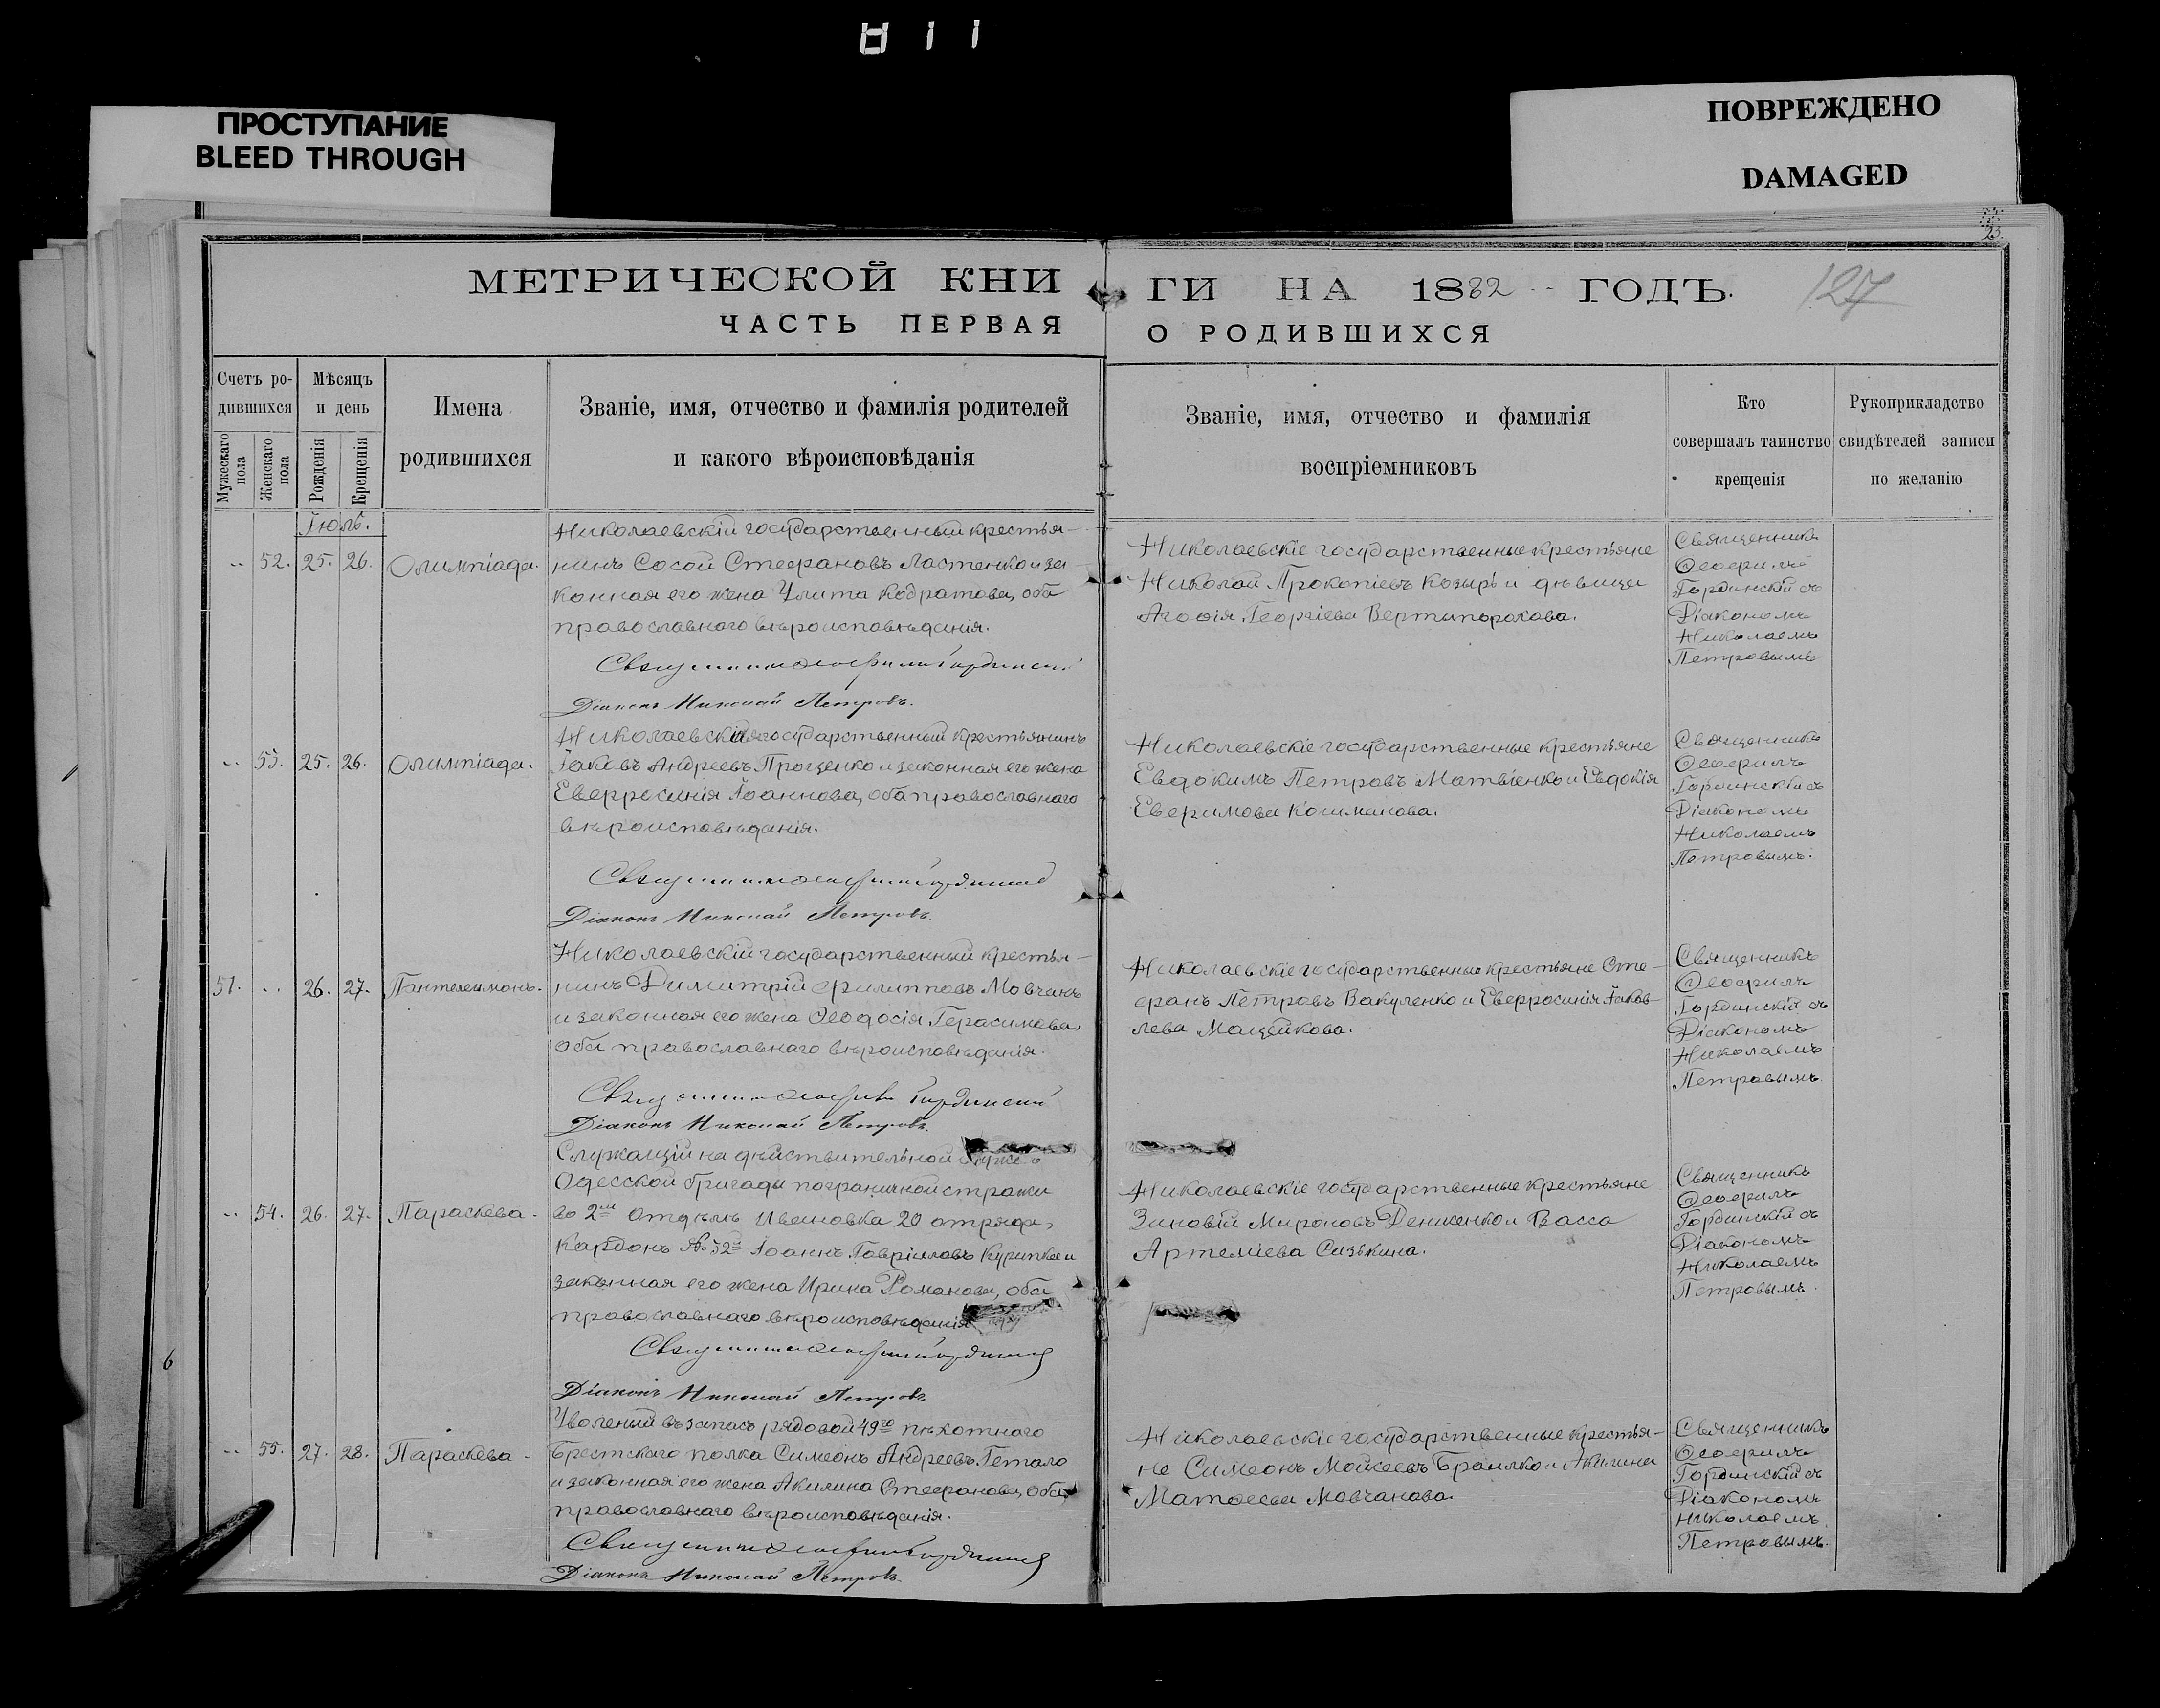 811
ПРОСТУПАНИЕ
BLEED THROUGH
ПОВРЕЖДЕНО
DAMAGED
МЕТРИЧЕСКОЙ КНИ
ЧАСТЬ ПЕРВАЯ
ГИ НА 1882 ГОДЪ.
127
О РОДИВШИХСЯ
Счетъ ро-
дившихся
Мужескаго пола
Женскаго пола
Мѣсяцъ
и день
Рожденія
Крещенія
Имена
родившихся
Званіе, имя, отчество и фамилія родителей
и какого вѣроисповѣданія
Званіе, имя, отчество и фамилія
воспріемниковъ
Кто
совершалъ таинство
крещенія
Рукоприкладство
свидѣтелей записи
по желанію
Іюль.
52. 25. 26. Олимпіада.
Николаевскій государственный крестья-
нинъ Сосой Стефановъ Ластенко и за
конная его жена Улита Кодратова, оба
православнаго вѣроисповѣданія.
Священникъ Ѳеофилъ Гординскій
Діаконъ Николай Петровъ.
Николаевскіе государственные крестьяне
Николай Прокопіевъ Козырь и дѣвица
Агафія Георгіева Вертипорохова.
Священникъ
Ѳеофилъ
Гординскій съ
Діакономъ
Николаемъ
Петровымъ
53. 25. 26. Олимпіада.
Николаевскій государственный крестьянинъ
Іаковъ Андреевъ Проценко и законная его жена
Евфросинія Іоаннова, оба православнаго
вѣроисповѣданія.
Священникъ Ѳеофилъ Гординскій
Діаконъ Николай Петровъ.
Николаевскіе государственные крестьяне
Евдокимъ Петровъ Матвіенко и Евдокія
Ефимова Кошманова.
Священникъ
Ѳеофилъ
Гординскій съ
Діакономъ
Николаемъ
Петровымъ.
51. 26. 27. Пантелеимонъ.
Николаевскій государственный крестья-
нинъ Димитрій Филипповъ Мовчанъ
и законная его жена Ѳеодосія Герасимова,
оба православнаго вѣроисповѣданія.
Священникъ Ѳеофилъ Гординскій
Діаконъ Николай Петровъ.
Николаевскіе государственные крестьяне Сте-
фанъ Петровъ Вакуленко и Евфросинія Іаков-
лева Мацейкова.
Священникъ
Ѳеофилъ
Гординскій съ
Діакономъ
Николаемъ
Петровымъ
54. 26. 27. Параскева.
Служащій на дѣйствительной службѣ
Одесской бригады пограничной стражи
во 2мъ отдѣлѣ Ивановка 20 отряда,
Кардонъ № 52й Іоаннъ Гавріиловъ Курипка и
законная его жена Ирина Романова, оба
православнаго вѣроисповѣданія
Священникъ Ѳеофилъ Гординскій
Діаконъ Николай Петровъ
Николаевскіе государственные крестьяне
Зиновій Мироновъ Денисенко и Васса
Артеміева Сизькина.
Священникъ
Ѳеофилъ
Гординскій съ
Діакономъ
Николаемъ
Петровымъ.
55. 27. 28. Параскева.
Уволеный въ запасъ рядовой 49го пѣхотнаго
Брестскаго полка Симеонъ Андреевъ Гетало
и законная его жена Акилина Стефанова, оба
православнаго вѣроисповѣданія.
Священникъ Ѳеофилъ Гординскій
Діаконъ Николай Петровъ.
Николаевскіе государственные крестья-
не Симеонъ Моисеевъ Браилко и Акилина
Матѳеева Мовчанова.
Священникъ
Ѳеофилъ
Гординскій съ
Діакономъ
Николаемъ
Петровымъ.
6